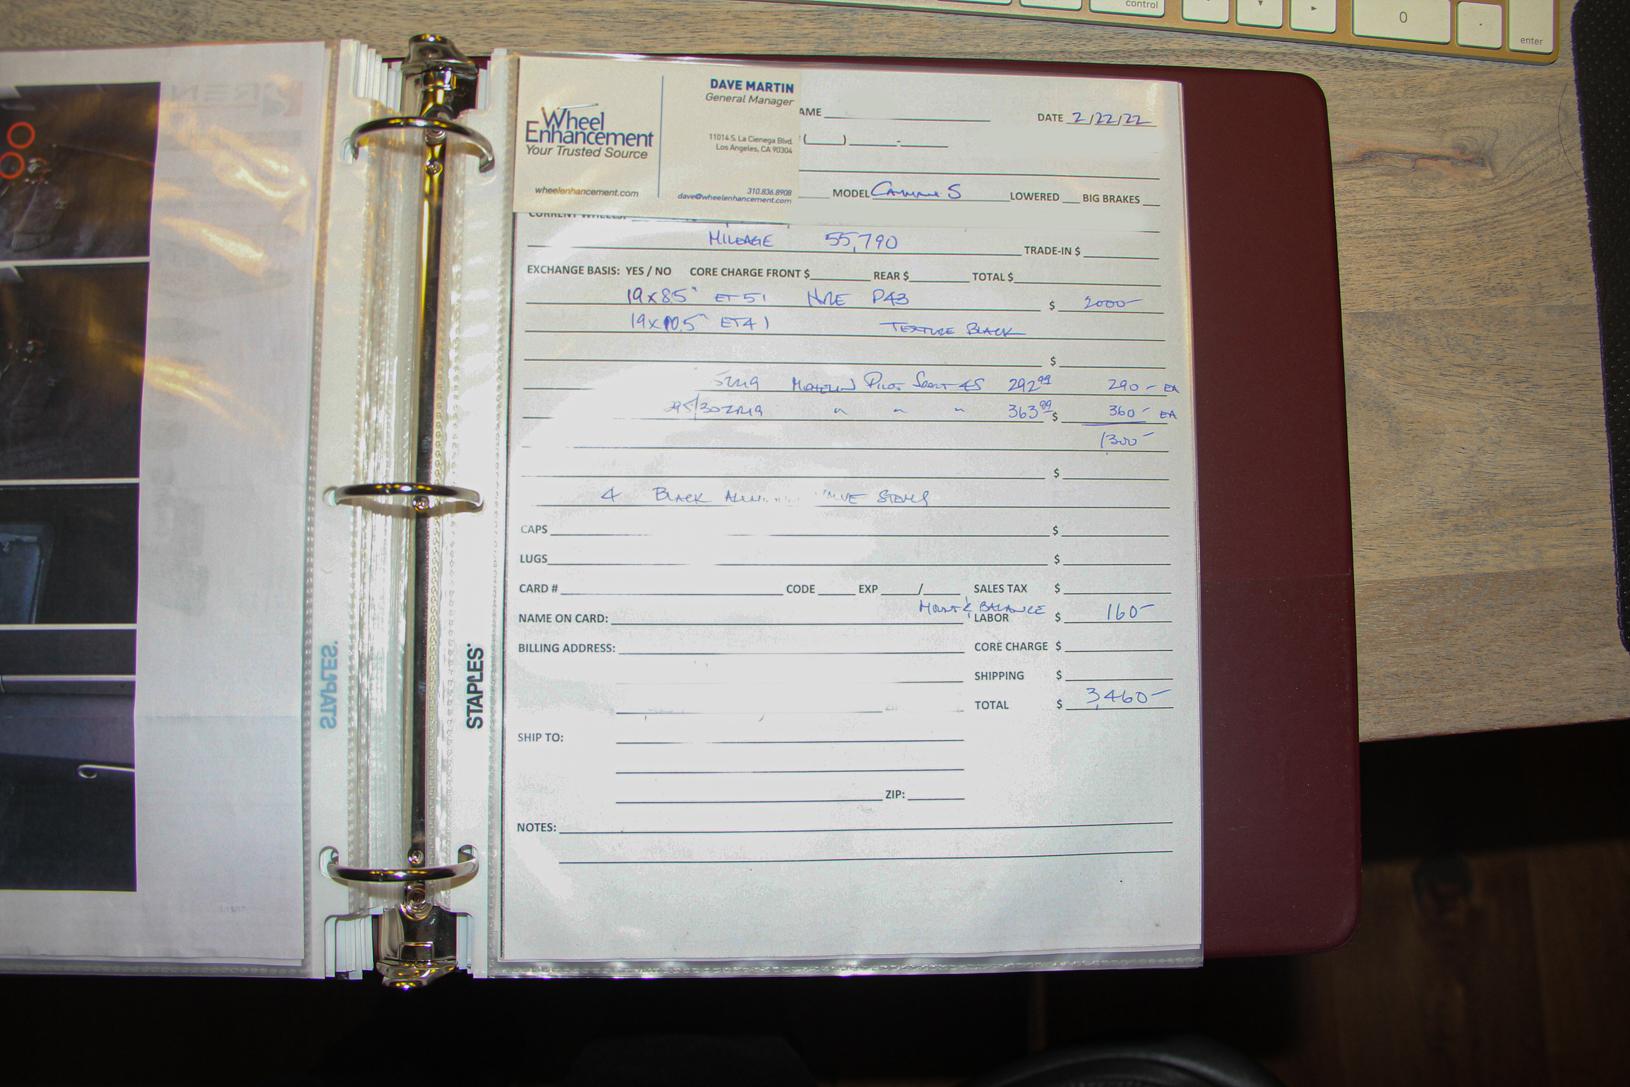 control
0
.
enter
DAVE MARTIN
General Manager
Wheel
Enhancement
Your Trusted Source
11014 S. La Cienega Blvd.
Los Angeles, CA 90304
wheelenhancement.com
310.836.8908
dave@wheelenhancement.com
AME DATE 2/22/22
( ) -
MODEL S LOWERED BIG BRAKES
CURRENT WHEELS:
MILEAGE 55,790 TRADE-IN $
EXCHANGE BASIS: YES / NO CORE CHARGE FRONT $ REAR $ TOTAL $
19x8.5" ET51 HRE P43 $ 2000-
19x10.5" ET41 TEXTURE BLACK
$
MICHELIN PILOT SPORT 4S 292.99 290- EA
363.99 $ 360- EA
1300-
$
4 BLACK STEMS
CAPS $
LUGS $
CARD # CODE EXP / SALES TAX $
MOUNT & BALANCE
NAME ON CARD: LABOR $ 160-
BILLING ADDRESS: CORE CHARGE $
SHIPPING $
TOTAL $ 3,460-
SHIP TO:
ZIP:
NOTES:
STAPLES.
STAPLES.